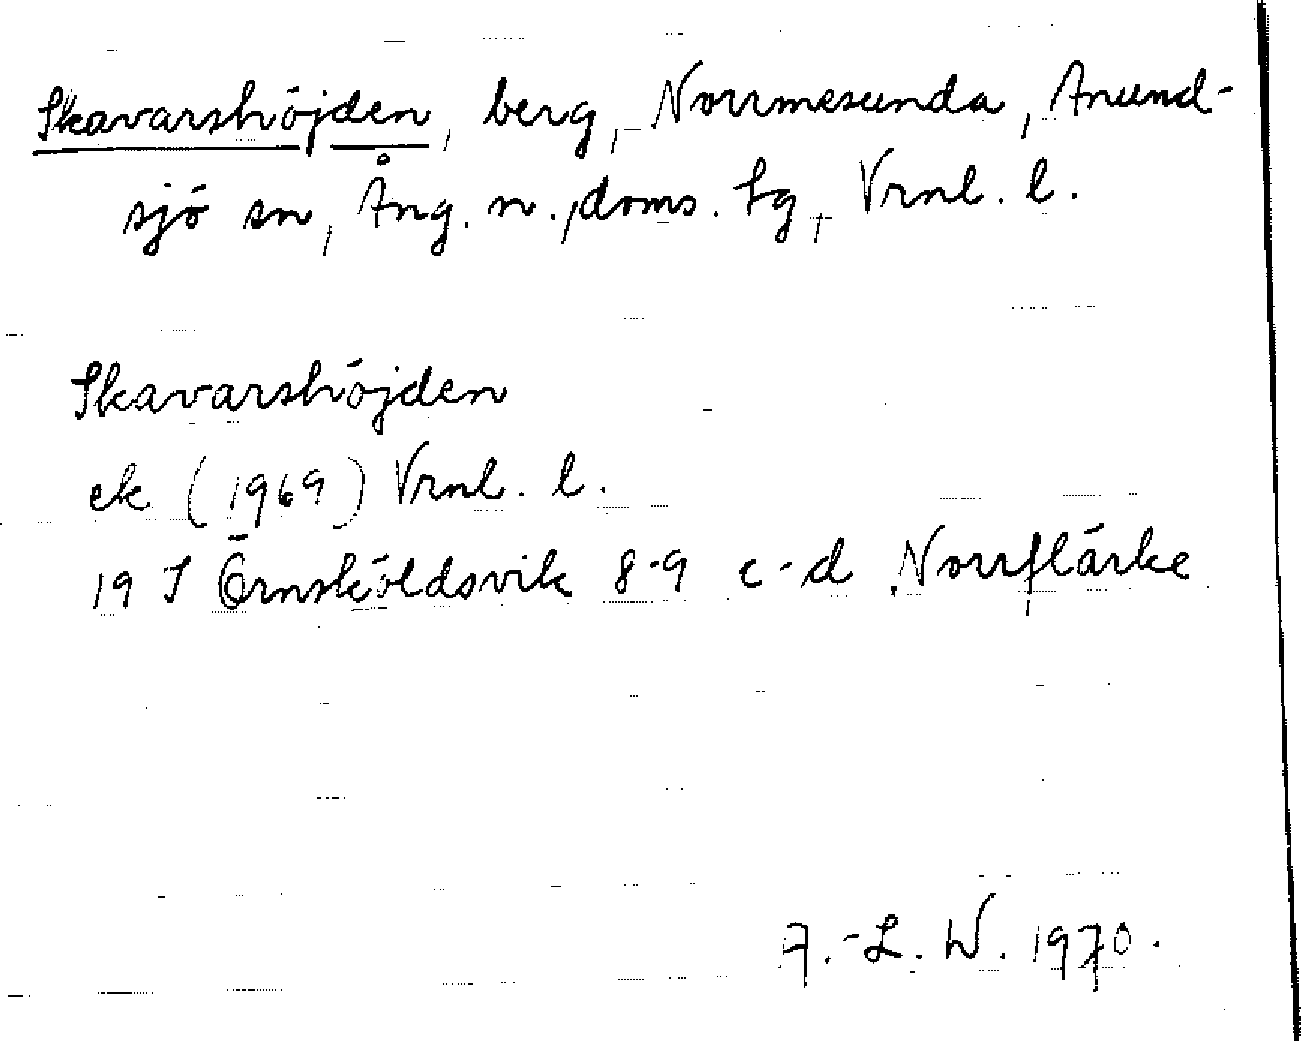 Skavarshöjden, berg, Norrmesunda, Anund-
sjö sn, Ång. n., doms. tg, Vrnl. l.
Skavarshöjden
ek (1969) Vrnl. l.
19 J Örnsköldsvik 8-9 c-d Norrflärke
A.-L. W. 1970.